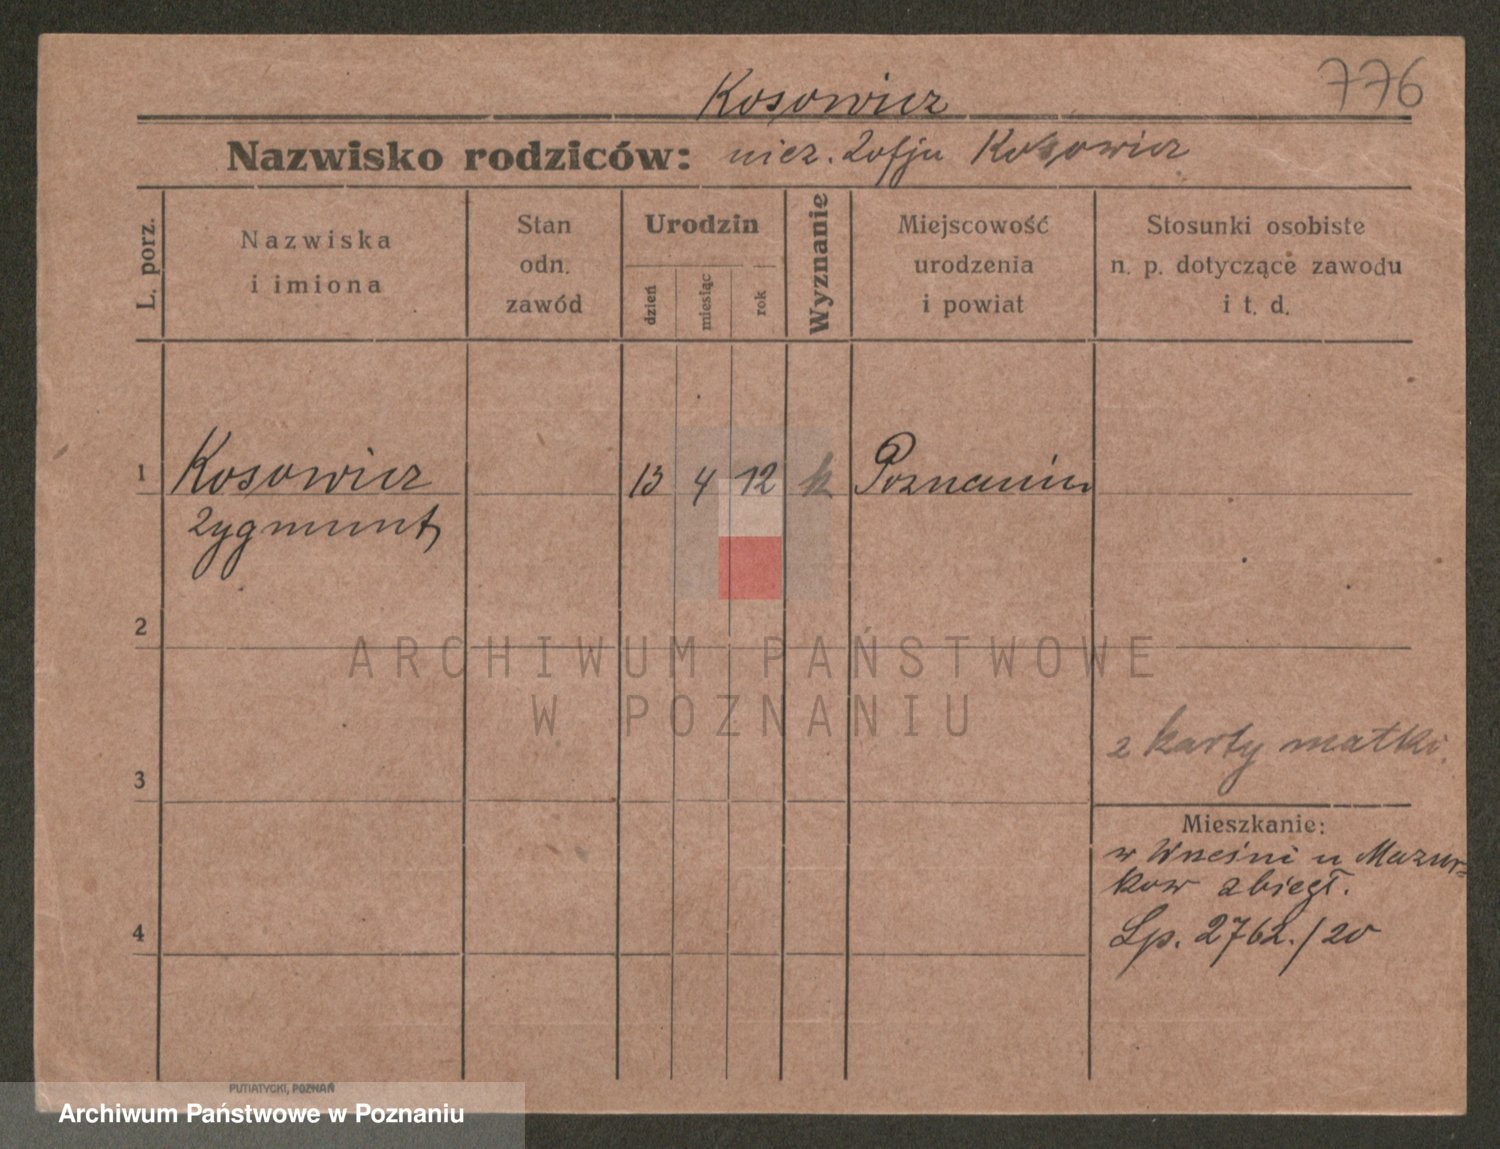 776
Kosowicz
Nazwisko rodziców: niez. Zofja Kosowicz
L. porz.
Nazwiska
i imiona
Stan
odn.
zawód
Urodzin
dzień
miesiąc
rok
Wyznanie
Miejscowość
urodzenia
i powiat
Stosunki osobiste
n. p. dotyczące zawodu
i t. d.
1 Kosowicz 13 4 12 k Poznaniu
Zygmunt
2
ARCHIWUM PAŃSTWOWE
W POZNANIU
z karty matki.
3
Mieszkanie:
w Wrześni u Mazur=
kow zbiegł.
4
Lp. 2762./20
PUTIATYCKI, POZNAŃ
Archiwum Państwowe w Poznaniu